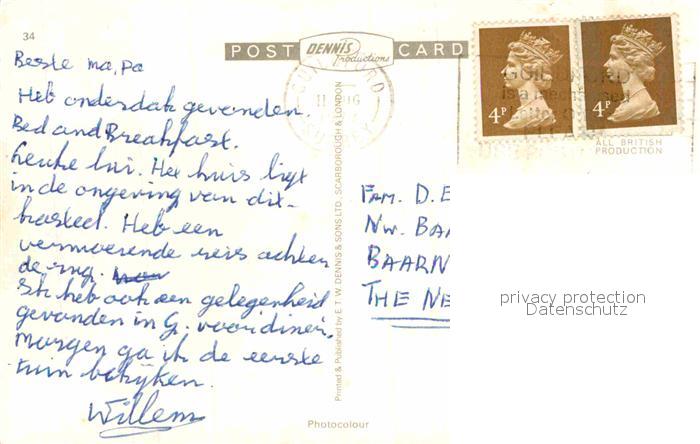 34
POST DENNIS Productions CARD
GUILDFORD
SURREY
4P 4P
GUILDFORD
is a mechanised
ALL BRITISH
PRODUCTION
Beste ma, pa
Heb onderdak gevonden.
Bed and Breakfast.
Leuke lui. Het huis ligt
in de omgeving van dit
kasteel. Heb een
vermoeiende reis achter
de rug.
Ik heb ook een gelegenheid
gevonden in G. voor diner.
Morgen ga ik de eerste
tuin bekijken.
Willem
Printed & Published by E.T.W. DENNIS & SONS LTD., SCARBOROUGH & LONDON
FAM. D.
NW. BAA
BAARN
THE NE
privacy protection
Datenschutz
Photocolour